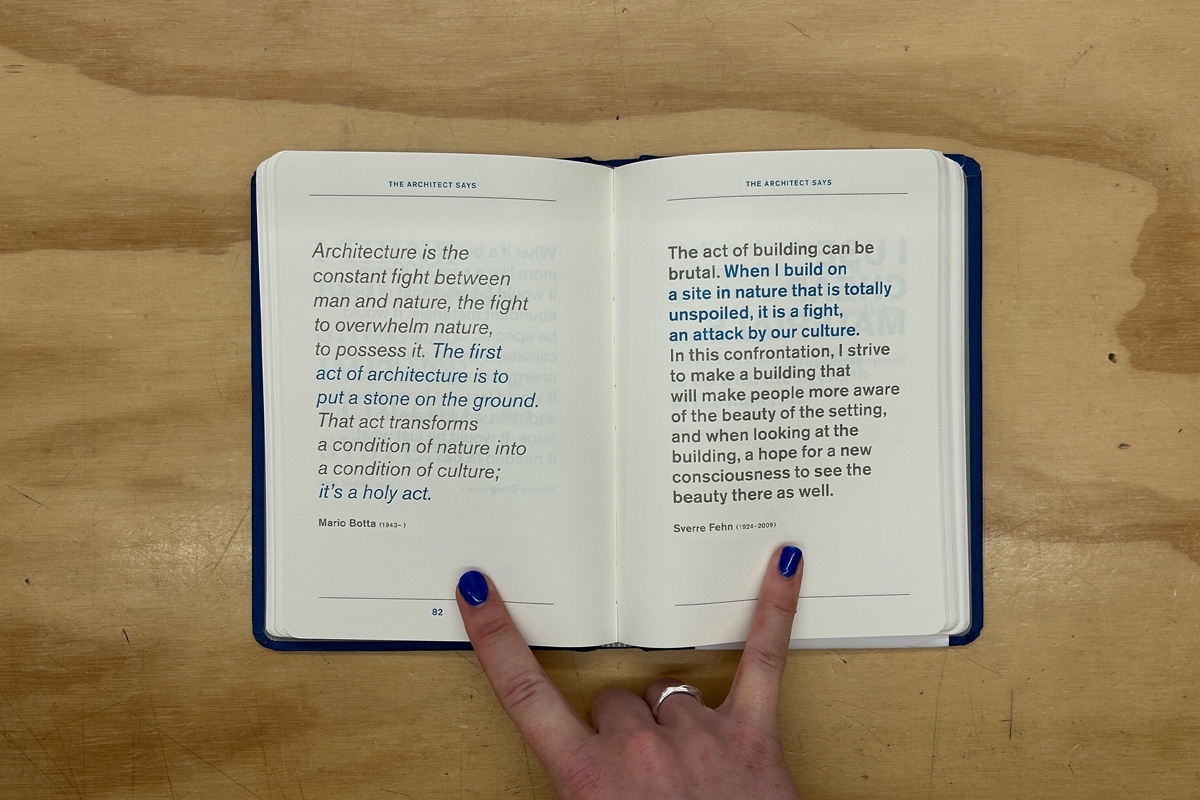 THE ARCHITECT SAYS
Architecture is the
constant fight between
man and nature, the fight
to overwhelm nature,
to possess it. The first
act of architecture is to
put a stone on the ground.
That act transforms
a condition of nature into
a condition of culture;
it's a holy act.
Mario Botta (1943– )
82
THE ARCHITECT SAYS
The act of building can be
brutal. When I build on
a site in nature that is totally
unspoiled, it is a fight,
an attack by our culture.
In this confrontation, I strive
to make a building that
will make people more aware
of the beauty of the setting,
and when looking at the
building, a hope for a new
consciousness to see the
beauty there as well.
Sverre Fehn (1924–2009)